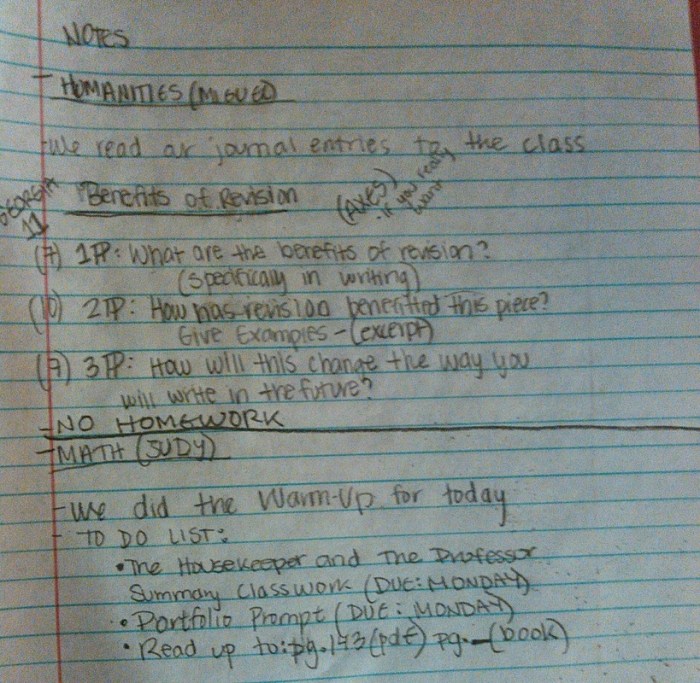 NOTES
- HUMANITIES (MIGUEL)
- We read ar journal entries to the class
"Benefits of Revision (AXES)
- if you really
want
GEORGIA
11
(7) 1P: What are the benefits of revision?
(specifically in writing)
(10) 2P: How has revision benefitted this piece?
Give Examples - (excerpt)
(7) 3P: How will this change the way you
will write in the future?
- NO HOMEWORK
- MATH (JUDY)
- We did the Warm-Up for today
- TO DO LIST:
• The Housekeeper and The Professor
Summary Classwork (DUE: MONDAY)
• Portfolio Prompt (DUE: MONDAY)
• Read up to: pg. 173 (pdf) pg. _ (book)